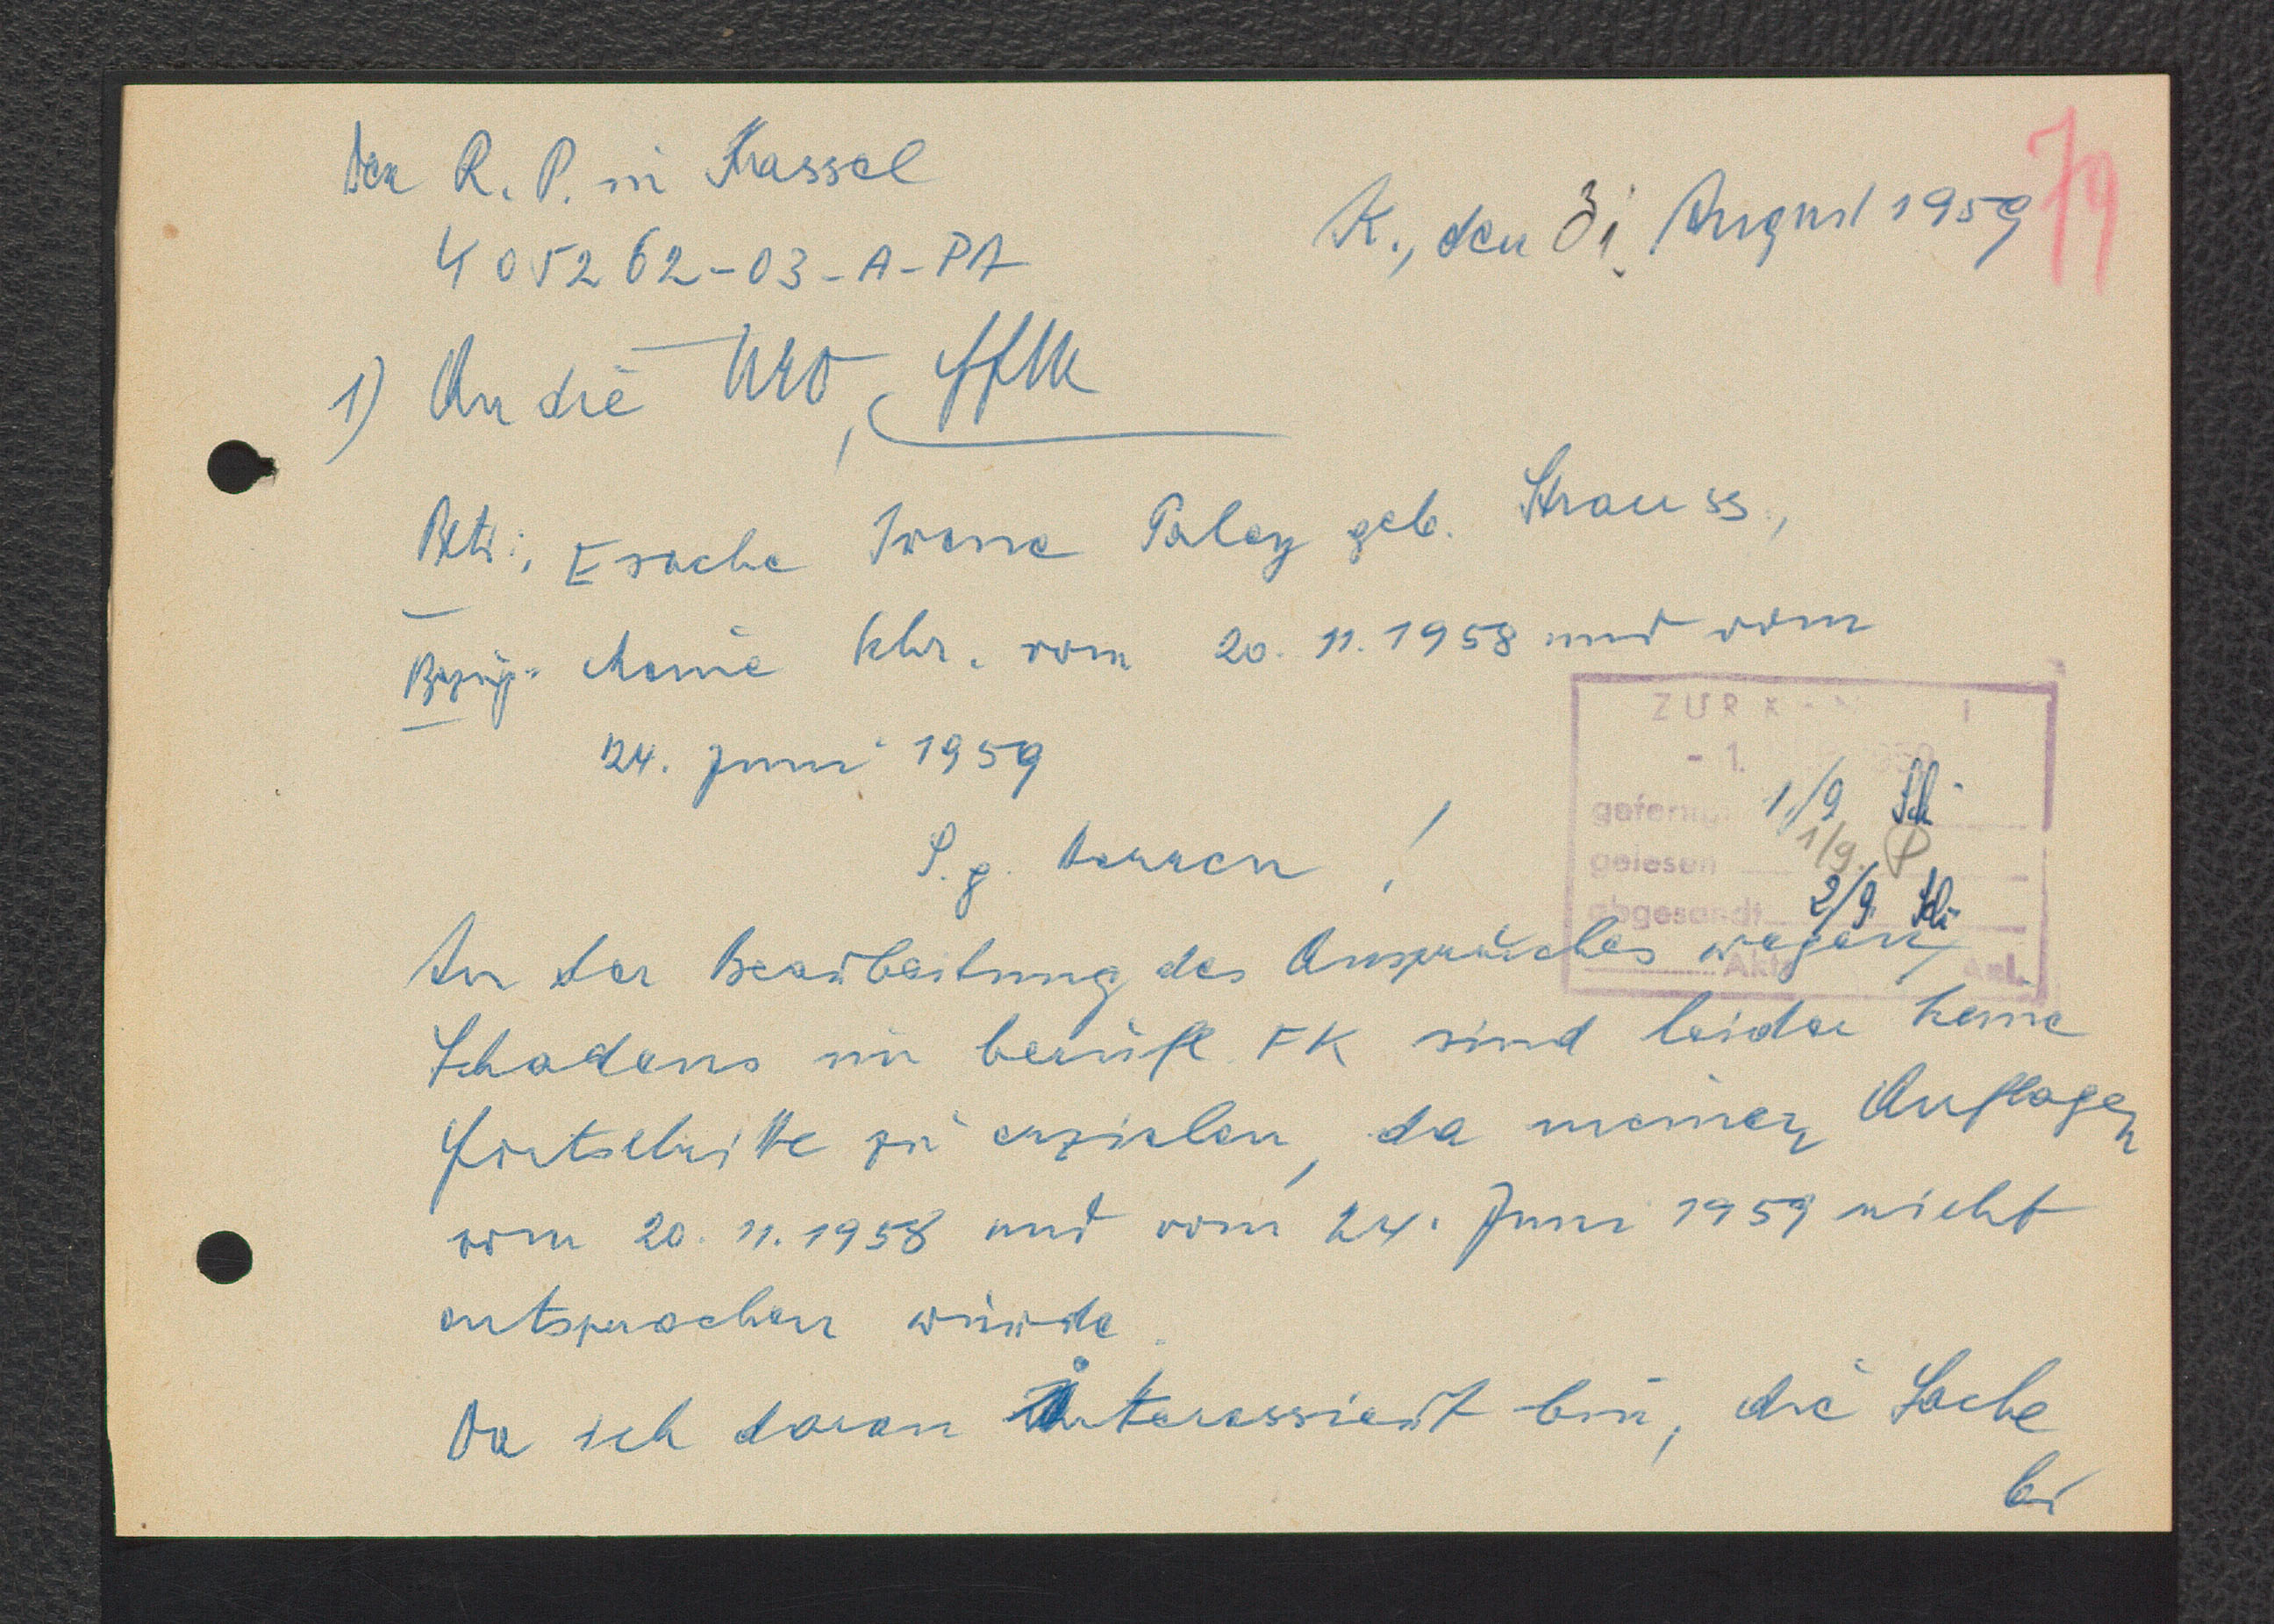 Der R. P. in Kassel
79
K., den 31. August 1959
405262-03-A-PA
1) An die URO, Ffm
Betr.: E sache Irene Paley geb. Strauss,
Bezug: Meine Schr. vom 20. 11. 1958 und vom
24. Juni 1959
ZUR
- 1.
gefertigt 1/9 Sch
gelesen 1/9. P
abgesandt 2/9. Sch
Akt Anl.
S. g. Herren!
In der Bearbeitung des Anspruches wegen
Schadens im berufl. FK sind leider keine
Fortschritte zu erzielen, da meinen Auflagen
vom 20. 11. 1958 und vom 24. Juni 1959 nicht
entsprochen wurde.
Da ich daran interessiert bin, die Sache
bi